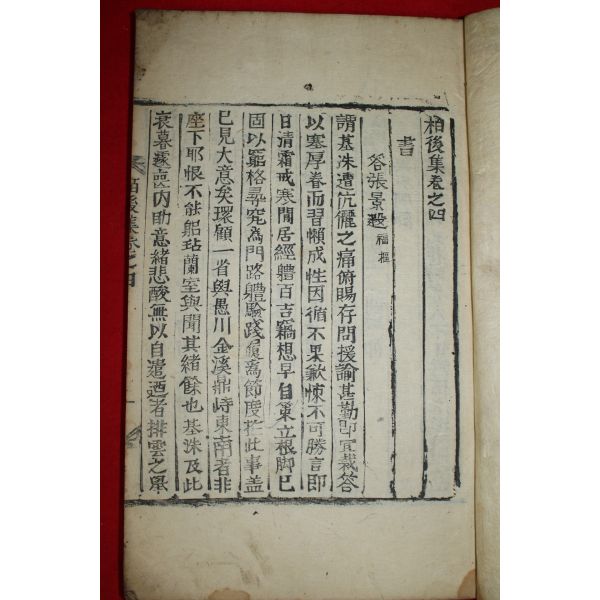 柏後集卷之四
書
答張景殷 福樞
謂基洙遭伉儷之痛俯賜存問援諭甚勤卽宜裁答
以塞厚眷而習懶成性因循不果歉悚不可勝言卽
日淸霜戒寒閒居經體百吉竊想早自策立根脚已
固以竆格尋究爲門路軆驗踐履爲節度於此事盖
已見大意矣環顧一省與愚川金溪鼎峙東南者非
座下耶恨不能貼蘭室與聞其緖餘也基洙及此
衰暮遽哭內助意緖悲酸無以自遣廼者排雲之擧
柏後集卷之四